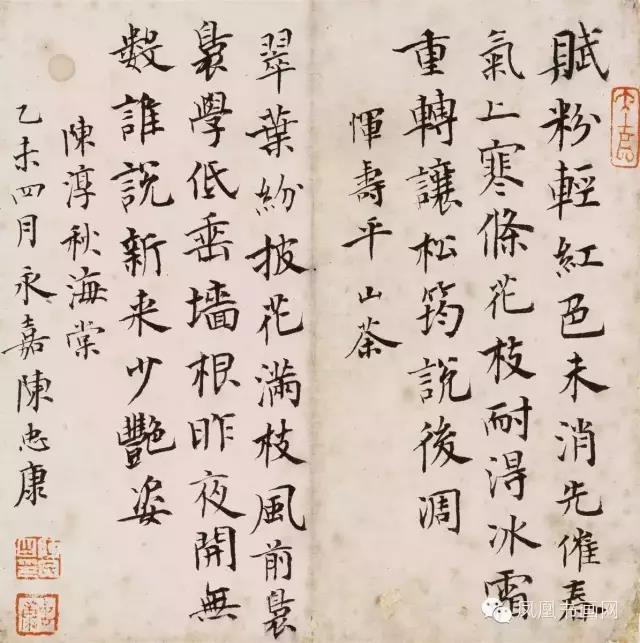 賦粉輕紅色未消先催春
氣上寒條花枝耐得冰雪
重轉讓松筠說後凋
惲壽平山茶
翠葉紛披花滿枝風前裊
裊學低垂墻根昨夜開無
數誰說新来少艷姿
陳淳秋海棠
乙未四月永嘉陳忠康
凤凰书画网